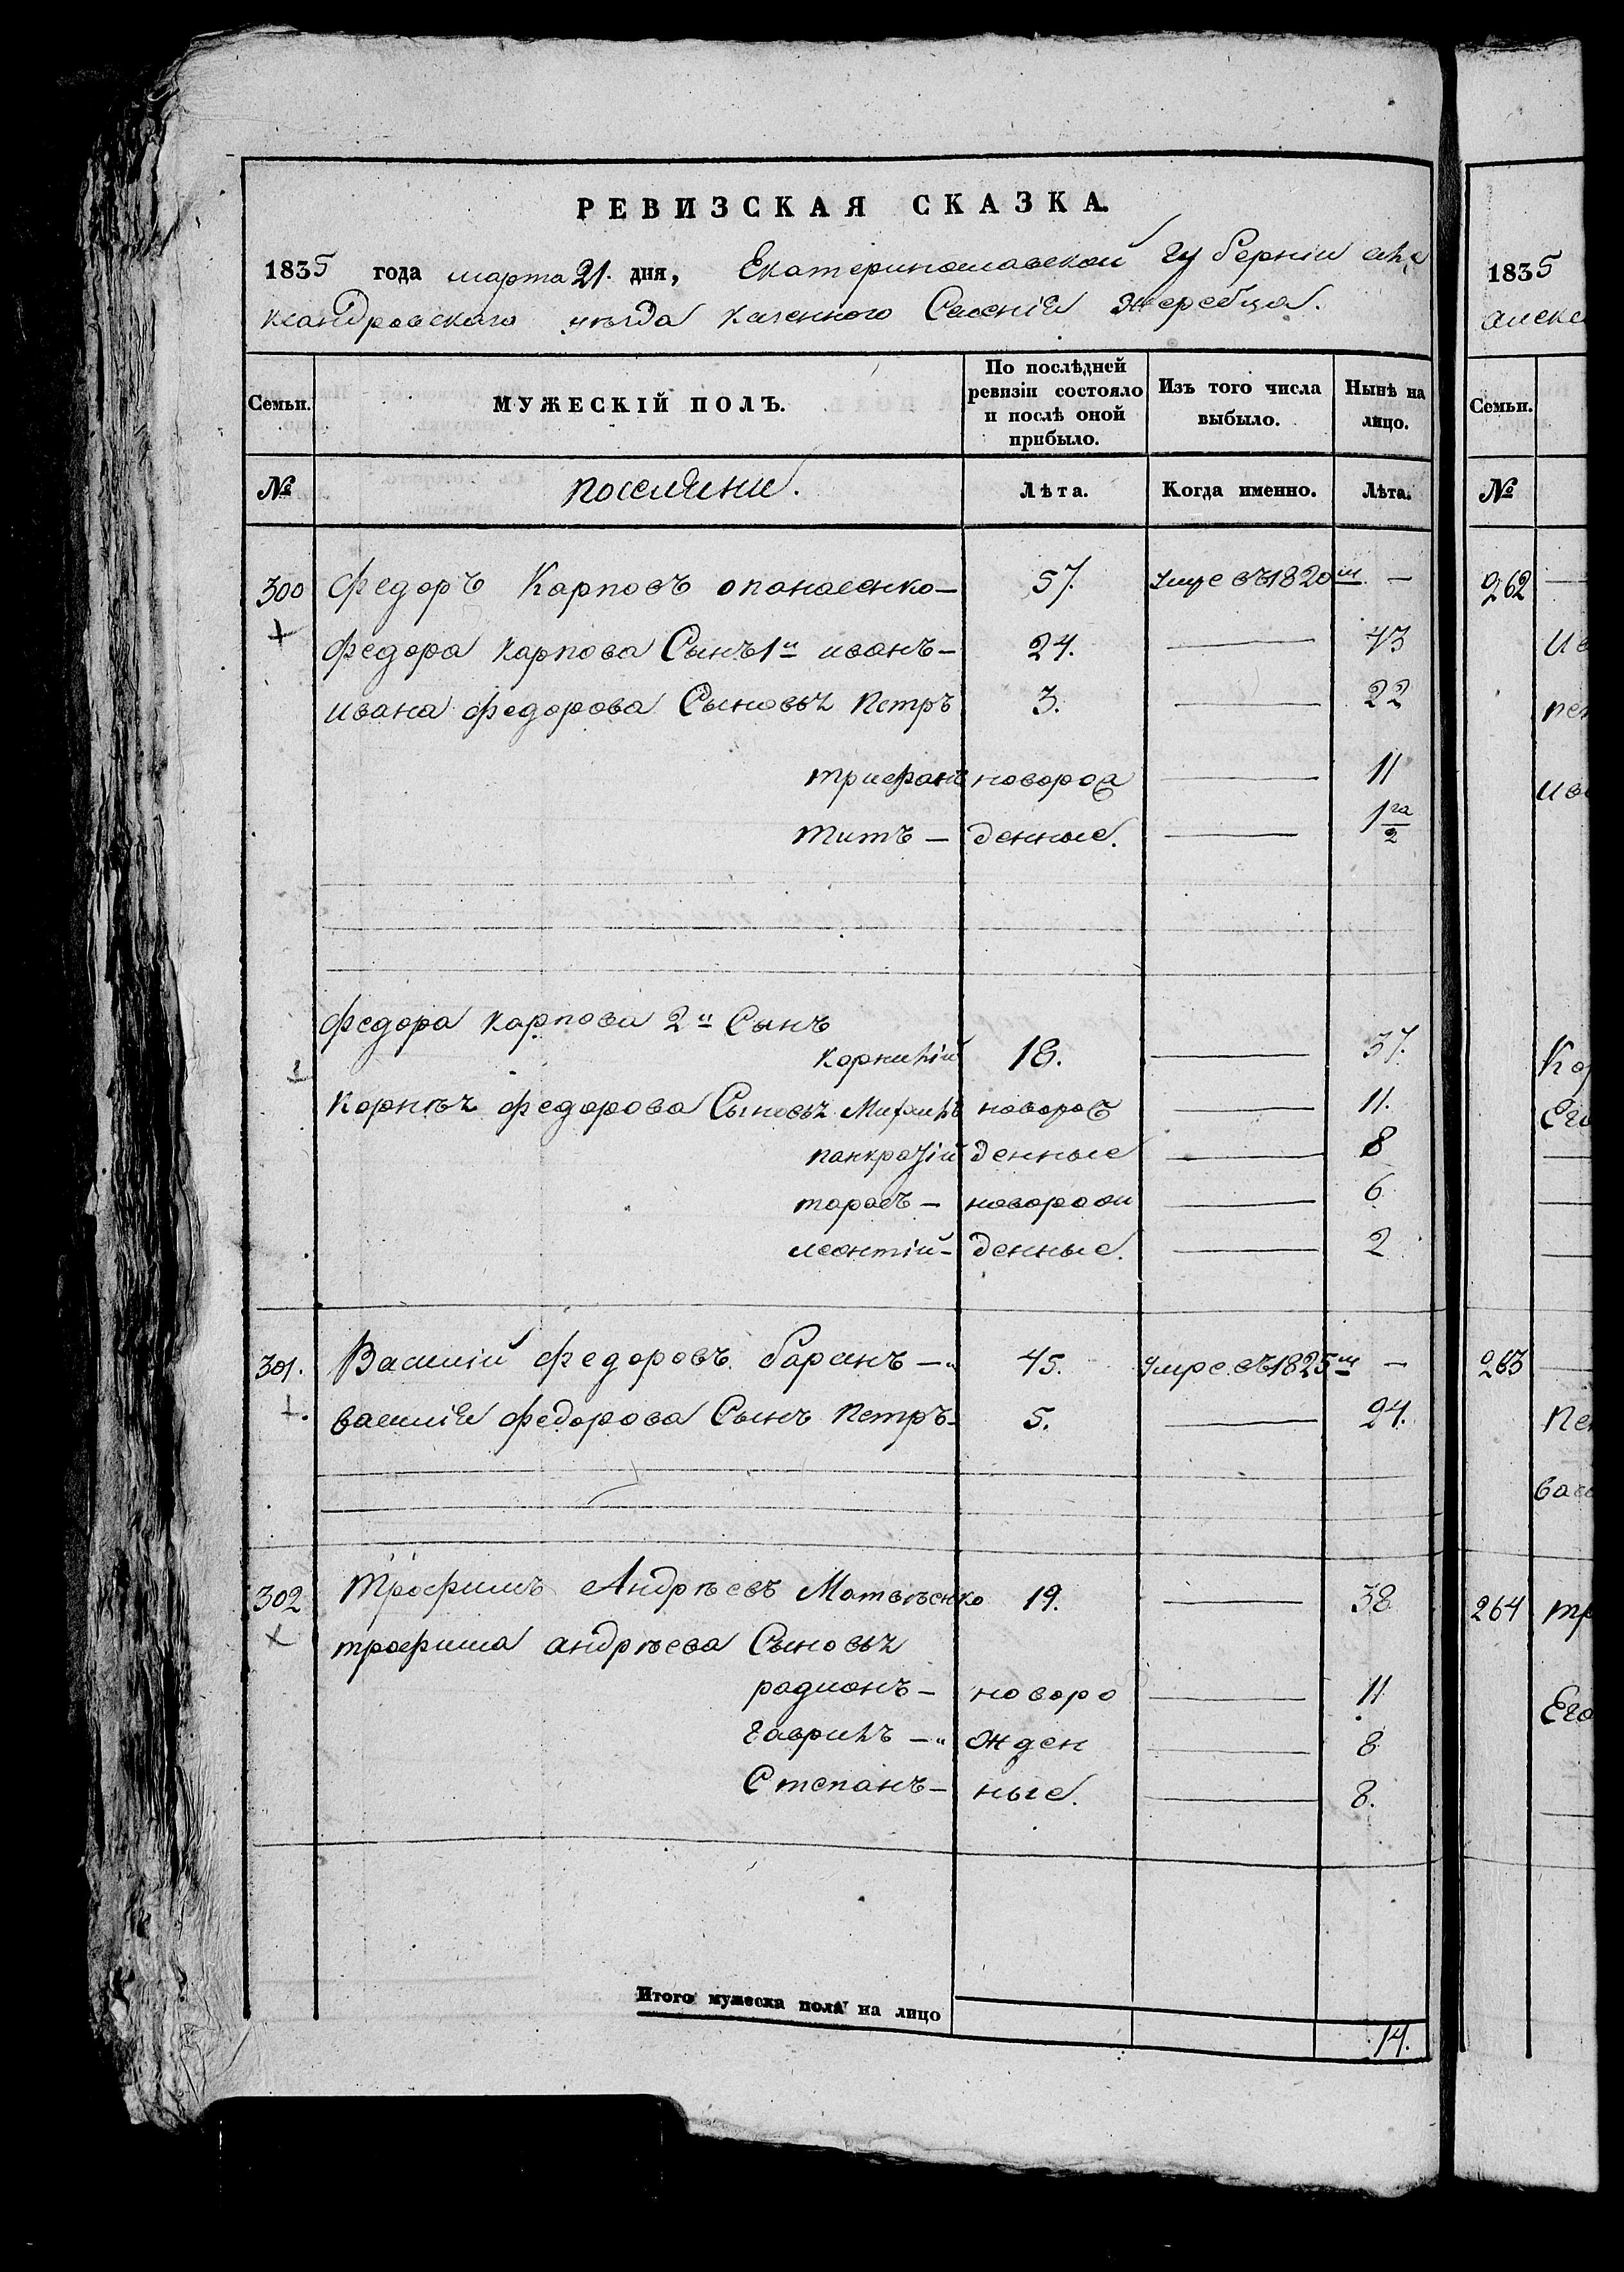 РЕВИЗСКАЯ СКАЗКА.
1835 года марта 21. дня, Екатеринославской губерніи Але
ксандровскаго уезда казенного Селенія Жеребца.
Семьи. МУЖЕСКІЙ ПОЛЪ. По послѣдней ревизіи состояло и послѣ оной прибыло. Изъ того числа выбыло. Нынѣ на лицо.
№ поселяни. Лѣта. Когда именно. Лѣта.
300 Федоръ Карповъ опанасенко — 57. умре въ 1820 м —
федора карпова Сынъ 1й иванъ — 24. — 43
ивана федорова Сыновья петръ 3. — 22
трифонъ новорож — 11
титъ — денные. — 1 1/2 го
федора карпова 2й Сынъ
корнилій 18. — 37.
корнѣя федорова Сыновья Михаилъ новорож — 11.
панкратій денные — 8
тарасъ — новорож — 6
леонтій — денные. — 2
301. Василій федоровъ баранъ — 45. умре въ 1825 м —
василія федорова Сынъ петръ — 5. — 24.
302 трофимъ Андрѣевъ Матвѣенко 19. — 38
трофима андрѣева Сыновья
радионъ — новоро — 11
гаврилъ — жден — 8
Степанъ — ные. — 8.
Итого мужеска пола на лицо 14.
1835
алекс
Семьи.
№
262
Ив
пет
ив
Кор
Его
263
Пет
264 тр
Его